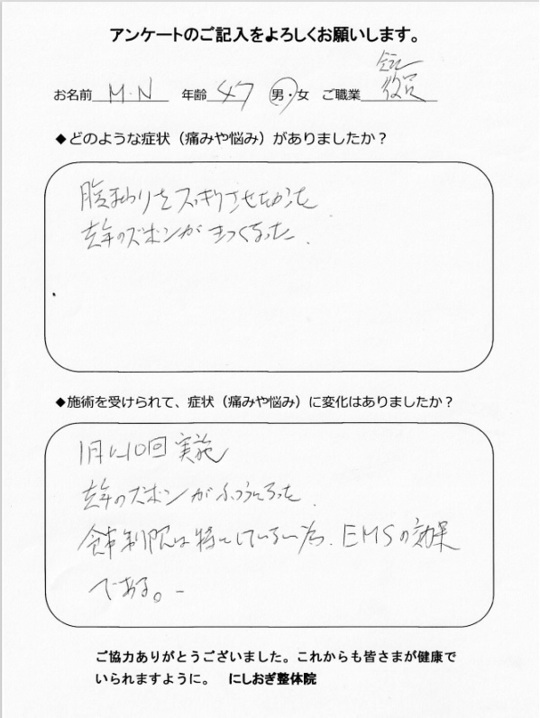 アンケートのご記入をよろしくお願いします。
お名前 M.N 年齢 47 男・女 ご職業 会社役員
◆どのような症状（痛みや悩み）がありましたか？
腹まわりをスッキリさせたかった
去年のズボンがきつくなった.
◆施術を受けられて、症状（痛みや悩み）に変化はありましたか？
1月に10回実施
去年のズボンがふつうになった.
食事制限は特にしていない為、EMSの効果
である。
ご協力ありがとうございました。これからも皆さまが健康で
いられますように。 にしおぎ整体院